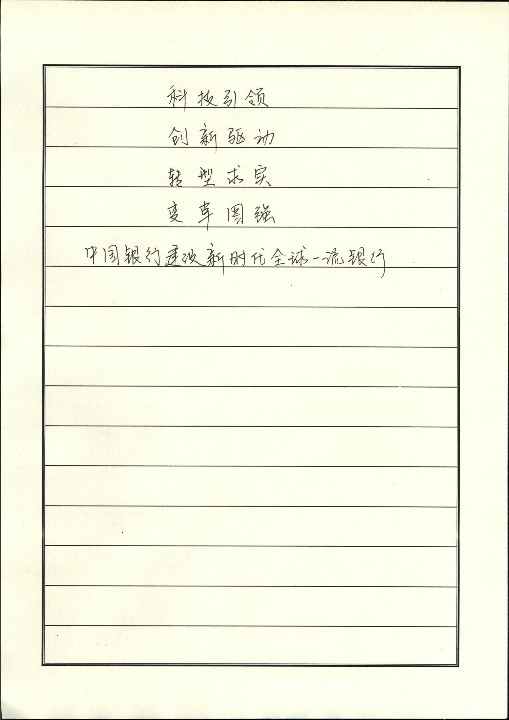 科技引领
创新驱动
转型求实
变革图强
中国银行建设新时代全球一流银行